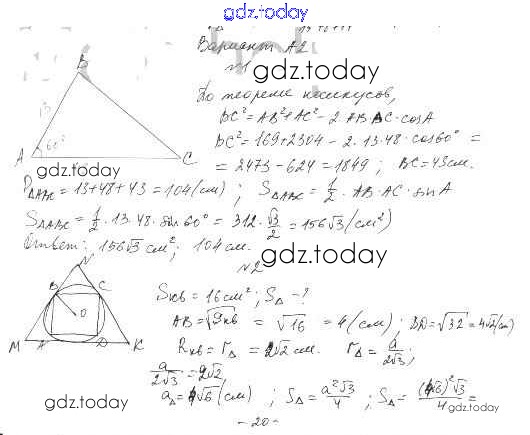 gdz.today
Вариант А2
№1
gdz.today
По теореме косинусов,
BC² = AB² + AC² - 2·AB·AC·cosA
BC² = 169 + 2304 - 2·13·48·cos60° =
= 2473 - 624 = 1849; BC = 43см.
B
13
60°
A
C
gdz.today
P△ABC = 13 + 48 + 43 = 104 (см); S△ABC = 1/2 · AB·AC·sinA
S△ABC = 1/2 · 13·48·sin60° = 312·√3/2 = 156√3 (см²)
Ответ: 156√3 см²; 104 см.
gdz.today
№2
N
B C
O
M A D K
Sкв = 16см²; S△ - ?
AB = √Sкв = √16 = 4 (см); BD = √32 = 4√2 (см)
Rкв = r△ = 2√2 см. r△ = a/2√3;
a/2√3 = 2√2
a△ = 4√6 (см); S△ = a²√3/4; S△ = (4√6)²√3/4 =
gdz.today
gdz.today
- 20 -